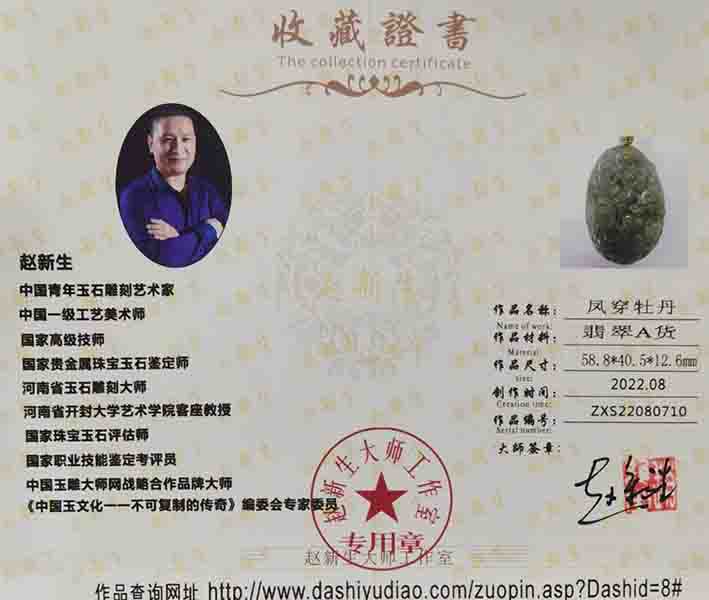 收藏證書
The collection certificate
赵新生
中国青年玉石雕刻艺术家
中国一级工艺美术师
国家高级技师
国家贵金属珠宝玉石鉴定师
河南省玉石雕刻大师
河南省开封大学艺术学院客座教授
国家珠宝玉石评估师
国家职业技能鉴定考评员
中国玉雕大师网战略合作品牌大师
《中国玉文化一一不可复制的传奇》编委会专家委员
作品名称: 凤穿牡丹
Name of work:
作品材料: 翡翠A货
Material:
作品尺寸: 58.8*40.5*12.6mm
size:
创作时间: 2022.08
Creation time:
作品编号: ZXS22080710
Serial number:
大师签章:
赵新生
赵新生大师工作室
专用章
赵新生大师工作室
作品查询网址 http://www.dashiyudiao.com/zuopin.asp?Dashid=8#